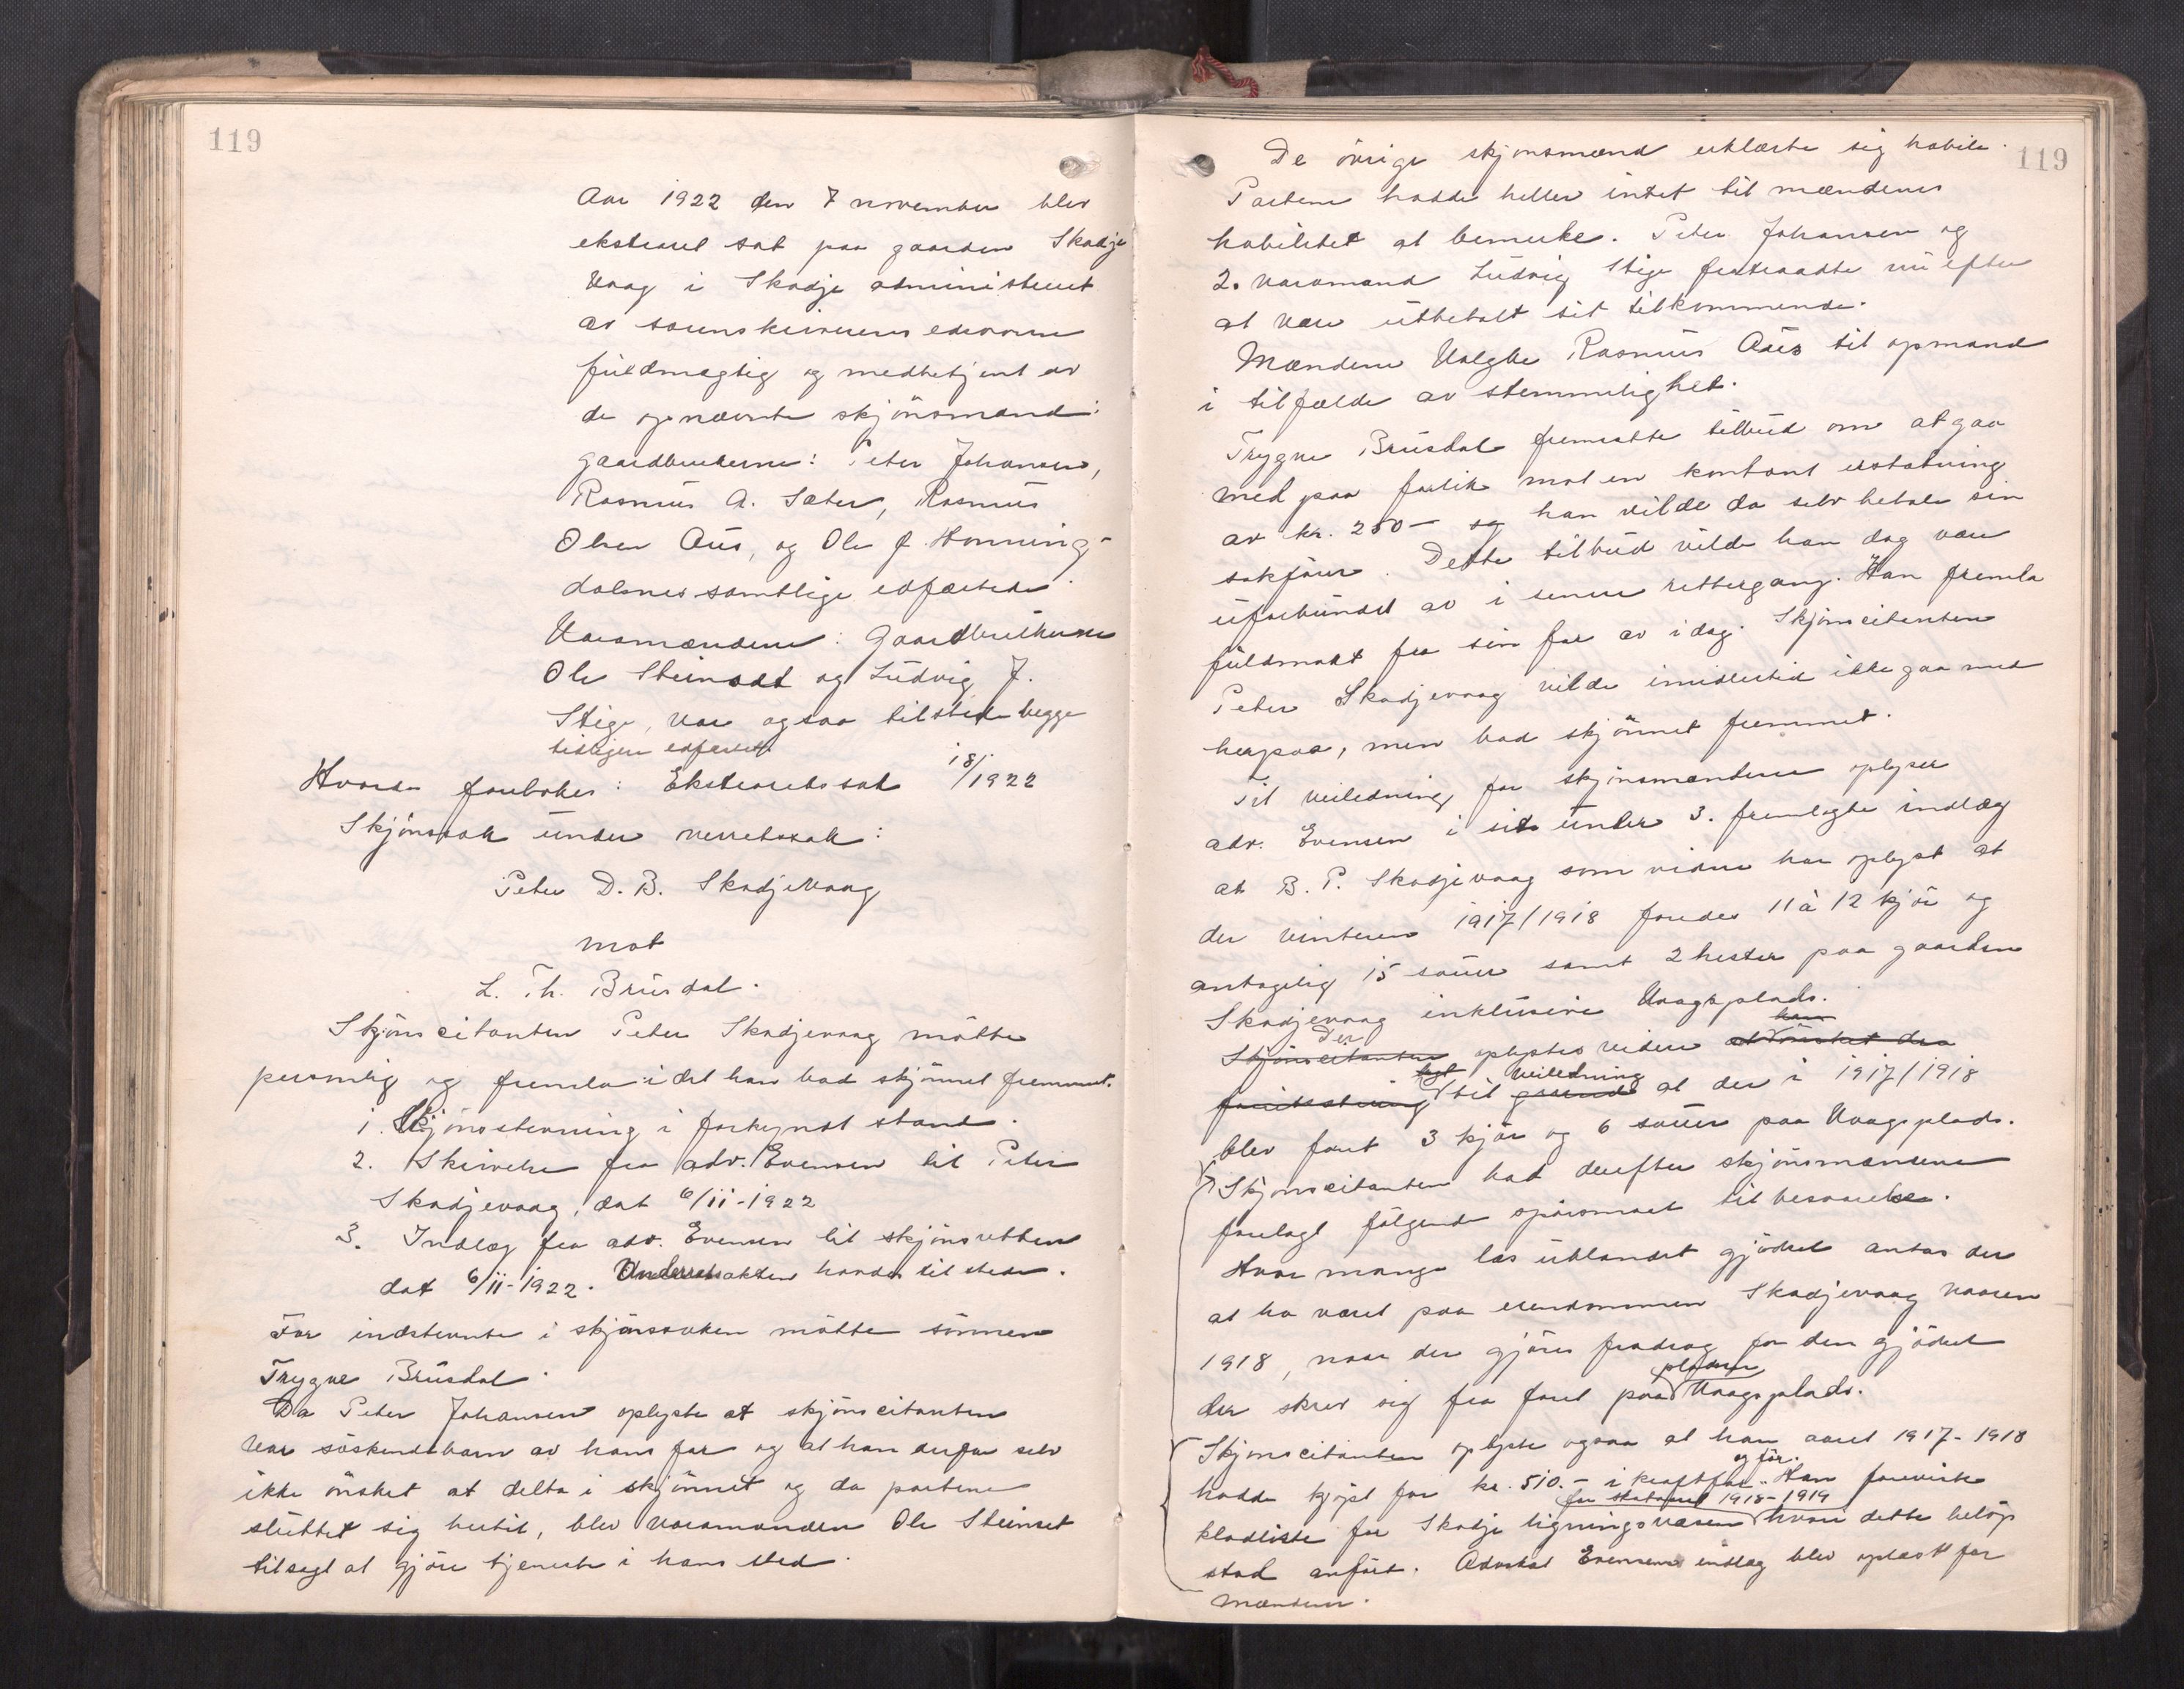 119
Aar 1922 den 7 november blev
ekstraret sat paa gaarden Skodje
Vaag i Skodje administreret
av sorenskriverens edsvorne
fuldmægtig og medbetjent av
de opnævnte skjönsmænd:
gaardbrukerne: Peter Johansen,
Rasmus A. Sæter, Rasmus
Olsen Aus, og Ole J. Honning-
dalsnes samtlige edfæstede.
Varamændene: Gaardbrukerne
Ole Steinset og Ludvig J.
Stige, var ogsaa tilstede begge
tidligere edfæstet.
Hvorda foretokes: Ekstraretssak 18/1922
Skjönssak under verretssak:
Peter D. B. Skodjevaag
mot
L. Th. Brusdal.
Skjönscitanten Peter Skodjevaag mötte
personlig og fremla idet han bad skjönnet fremmet.
1. Skjönsstevning i forkyndt stand.
2. Skrivelse fra adv. Evensen til Peter
Skodjevaag, dat 6/11-1922
3. Indlæg fra adv. Evensen til skjönsretten
dat 6/11-1922. Underretsakten havdes tilstede.
For indstevnte i skjönssaken mötte sönnen
Trygve Brusdal.
Da Peter Johansen oplyste at skjönscitanten
var söskendebarn av hans far og at han derfor selv
ikke önsket at delta i skjönnet og da partene
sluttet sig hertil, blev varamanden Ole Steinset
tilsagt at gjöre tjeneste i hans sted.
119
De övrige skjönsmænd erklærte sig habile.
Partene hadde heller intet til mændenes
habilitet at bemerke. Peter Johansen og
2. varamand Ludvig Stige fratraadte nu efter
at være utbetalt sit tilkommende.
Mændene valgte Rasmus Aus til opmand
i tilfælde av stemmelighet.
Trygve Brusdal fremsatte tilbud om at gaa
med paa forlik mot en kontant erstatning
av kr. 250- og han vilde da selv betale sin
sakförer. Dette tilbud vilde han dog være
uforbundet av i senere rettergang. Han fremla
fuldmakt fra sin far av idag. Skjönscitanten
Peter Skodjevaag vilde imidlertid ikke gaa med
herpaa, men bad skjönnet fremmet.
Til veiledning for skjönsmændene oplyser
adv. Evensen i sit under 3. fremlagte indlæg
at B. P. Skodjevaag som vidne har oplyst at
der vinteren 1917/1918 foredes 11 à 12 kjör og
antagelig 15 sauer samt 2 hester paa gaarden
Skodjevaag inklusive Vaagsplads.
Der han
Skjönscitanten oplystes videre at önsket den
lagt veiledning
til grund at der i 1917/1918
blev foret 3 kjör og 6 sauer paa Vaagsplads.
Skjönscitanten bad derefter skjönsmændene
forelagt fölgende spörsmaal til besvarelse.
Hvor mange læs utblandet gjödsel antas der
at ha været paa eiendommen Skodjevaag vaaren
1918, naar der gjöres fradrag for den gjödsel
pladsen
der skrev sig fra foret paa Vaagsplads.
Skjönscitanten oplyste ogsaa at han aaret 1917-1918
og för.
hadde kjöpt for kr. 510.- i kraftfor. Han foreviste
for skataaret 1918-1919
kladliste for Skodje ligningsvæsen hvori dette belöp
stod anfört. Advokat Evensens indlæg blev oplæst for
mændene.